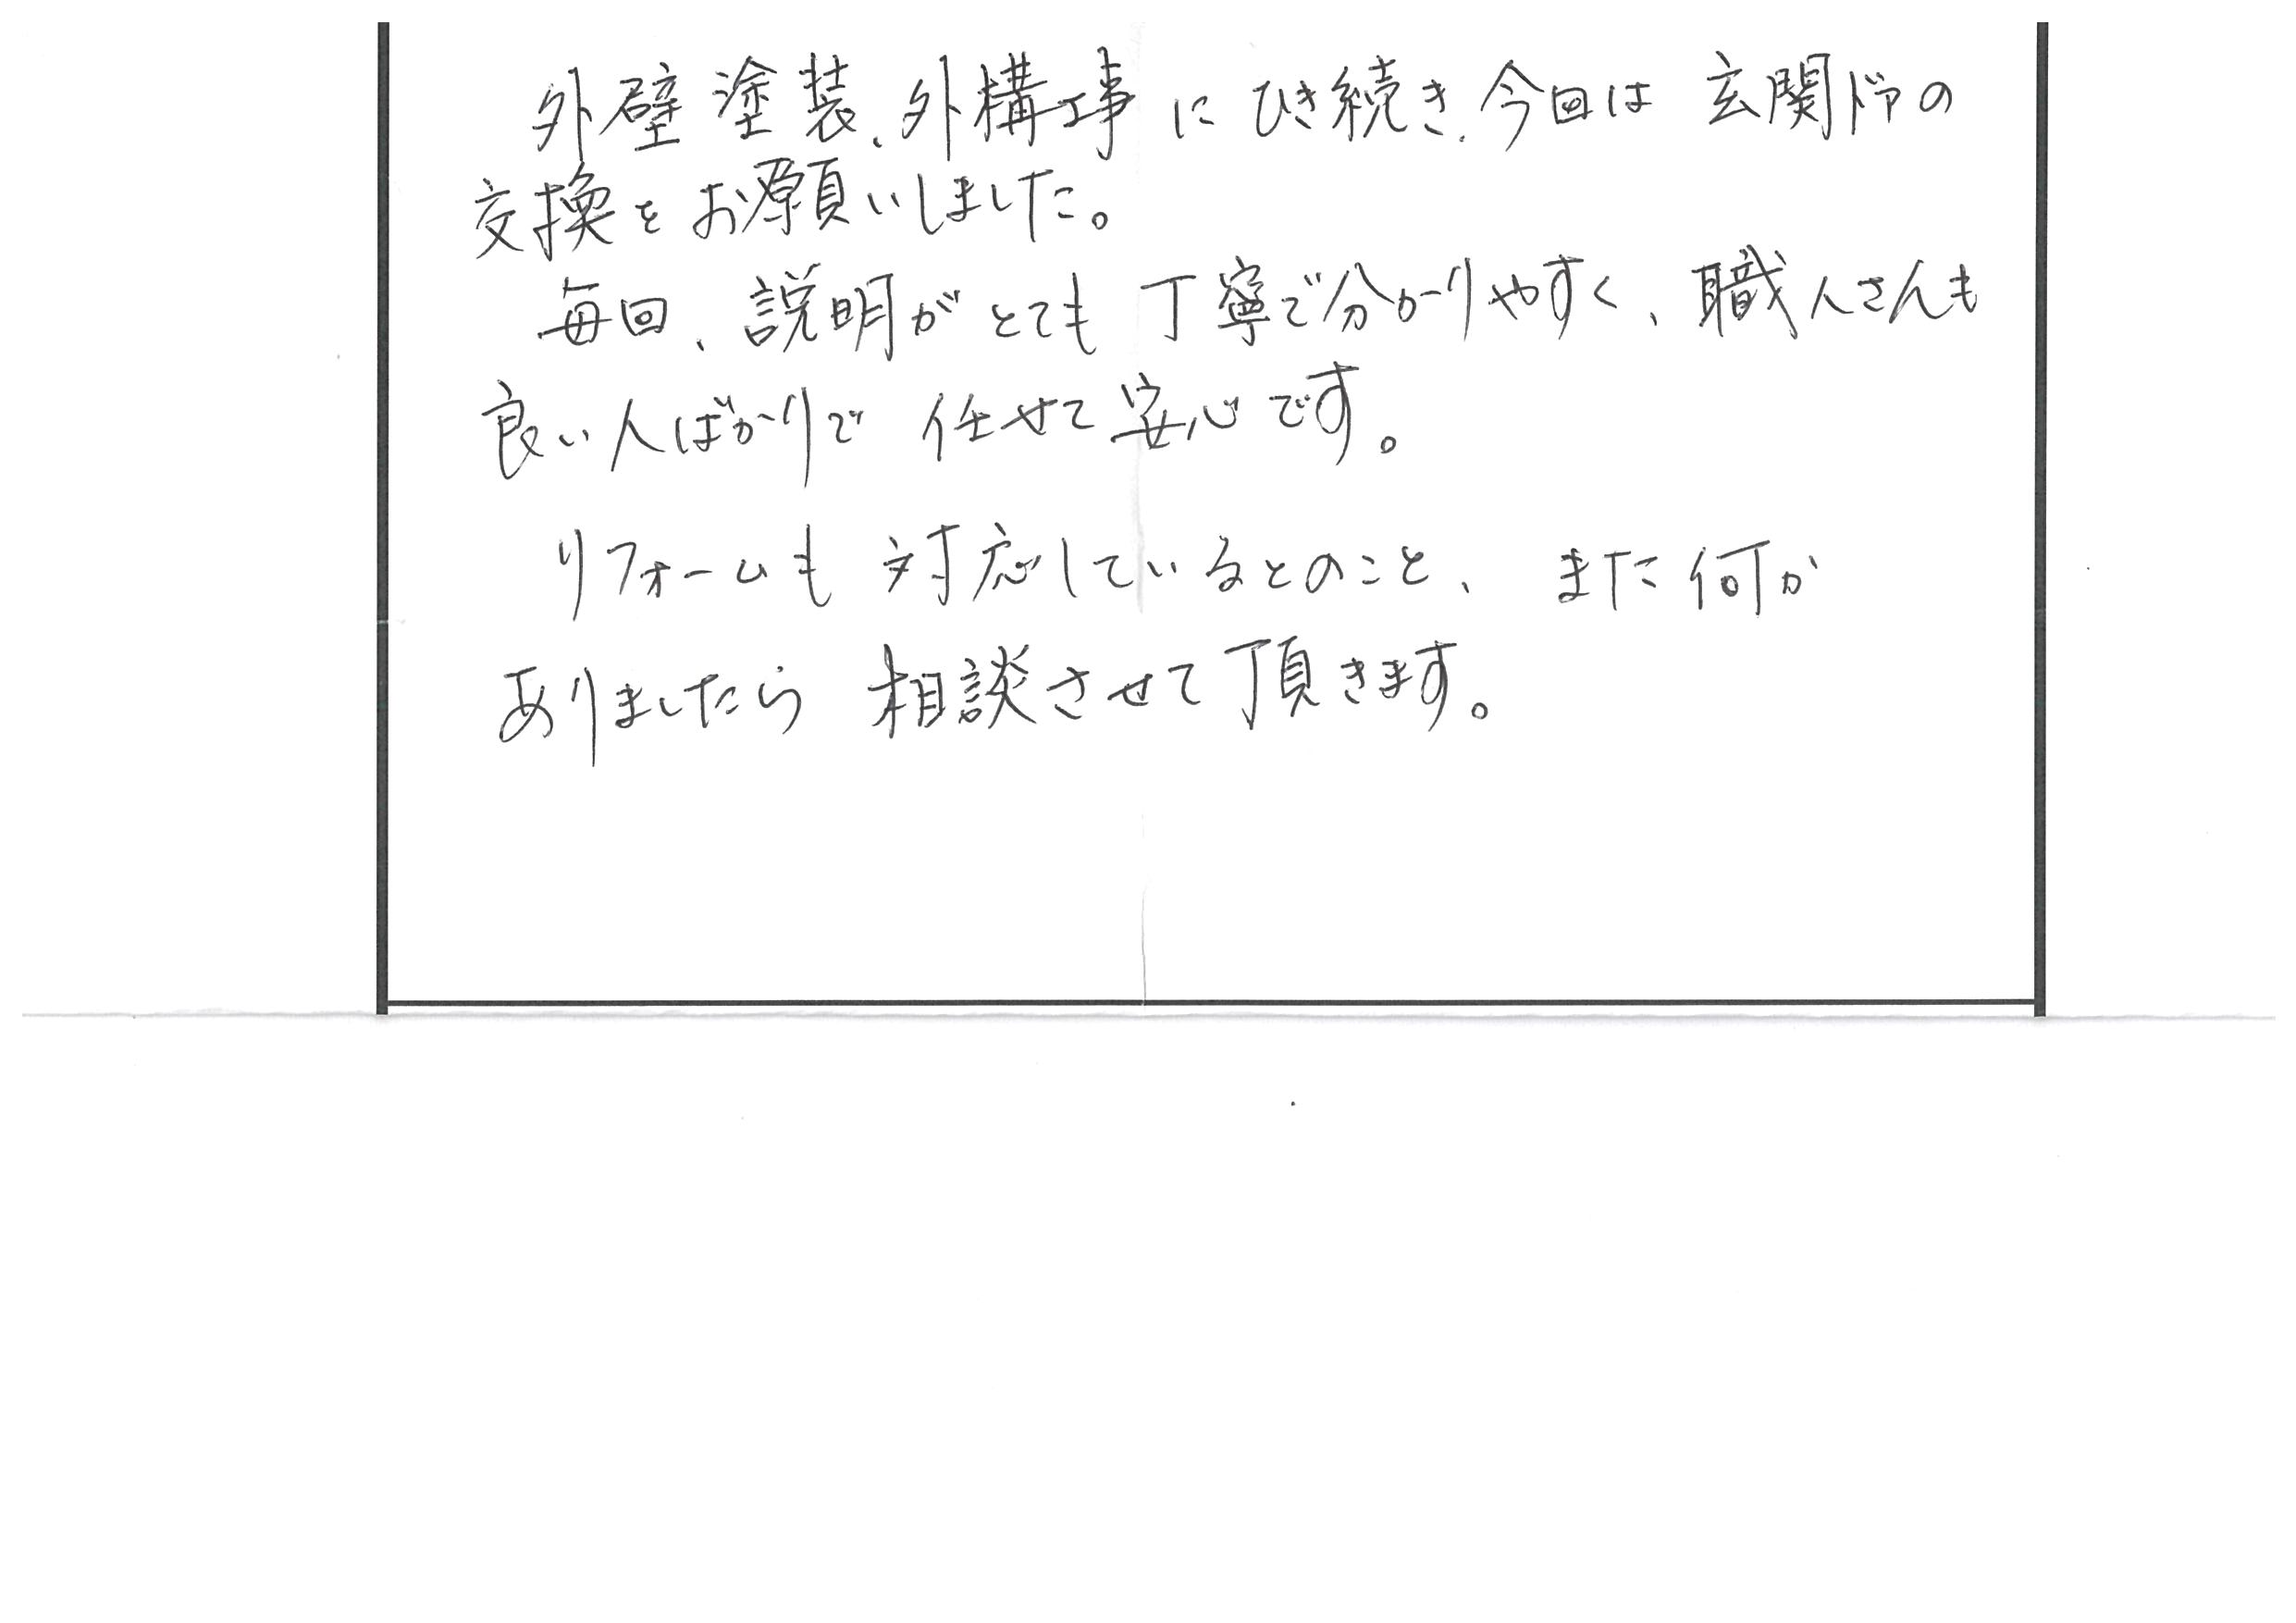 外壁塗装、外構工事にひき続き、今回は玄関ドアの
交換をお願いしました。
毎回、説明がとても丁寧で分かりやすく、職人さんも
良い人ばかりで任せて安心です。
リフォームも対応しているとのこと、また何か
ありましたら相談させて頂きます。